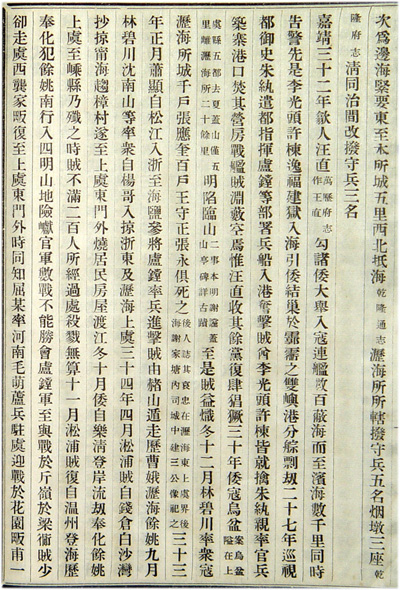 次爲邊海緊要東至本所城五里西北抵海乾隆通志瀝海所所轄撥守兵五名烟墩三座乾
隆府志淸同治間改撥守兵三名
嘉靖三十二年歙人汪直萬歷府志作王直勾諸倭大舉入寇連艦數百蔽海而至濱海數千里同時
告警先是李光頭許棟逸福建獄入海引倭結巢於霩䨥之雙嶼港分䑸剽刼二十七年巡視
都御史朱紈遣都指揮盧鏜等部署兵船入港奪擊賊酋李光頭許棟皆就擒朱紈親率官兵
築寨港口焚其營房戰艦賊淵藪空焉惟汪直收其餘黨復肆猖獗三十年倭寇烏盆案烏盆隘在上
虞縣五都去夏蓋山僅五里離瀝海所二十餘里明陷臨山二事本明謝讜蓋山亭碑詳古蹟至是賊益熾冬十二月林碧川率衆寇
瀝海所城千戶張應奎百戶王守正張永俱死之後人誌其哀忠在瀝海東上虞界後海謝家塘內司城中建三公像祀之三十三
年正月蕭顯自松江入浙至海鹽參將盧鏜率兵進擊賊由赭山遁走歷曹娥瀝海餘姚九月
林碧川沈南山等率衆自楊哥入掠浙東及瀝海上虞三十四年四月淞浦賊自錢倉白沙灣
抄掠甯海趨樟村遂至上虞東門外燒居民房屋渡江冬十月倭自樂淸登岸流刼奉化餘姚
上虞至嵊縣乃殲之時賊不滿二百人所經過處殺戮無算十一月淞浦賊復自溫州登海歷
奉化犯餘姚南行入四明山地險巇官軍敷戰不能勝會盧鏜軍至與戰於斤嶺於梁衕賊少
却走虞西龔家畈復至上虞東門外時同知屈某率河南毛萌蘆兵駐處迎戰於花園畈甫一